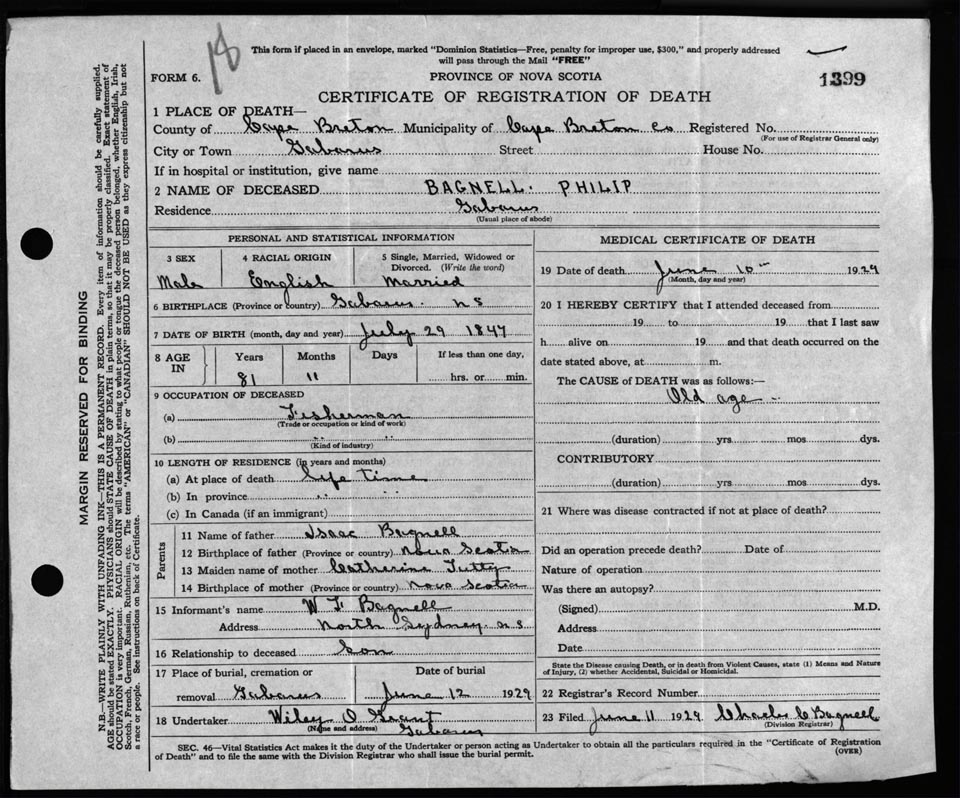 18
This form if placed in an envelope, marked "Dominion Statistics—Free, penalty for improper use, $300," and properly addressed
will pass through the Mail "FREE"
FORM 6.
PROVINCE OF NOVA SCOTIA
1399
CERTIFICATE OF REGISTRATION OF DEATH
1 PLACE OF DEATH—
County of Cape Breton Municipality of Cape Breton Co Registered No.
(For use of Registrar General only)
City or Town Gabarus Street House No.
If in hospital or institution, give name
2 NAME OF DECEASED BAGNELL. PHILIP
Residence Gabarus
(Usual place of abode)
PERSONAL AND STATISTICAL INFORMATION
3 SEX 4 RACIAL ORIGIN 5 Single, Married, Widowed or
Divorced. (Write the word)
Male English Married
6 BIRTHPLACE (Province or country) Gabarus. N S
7 DATE OF BIRTH (month, day and year) July 29 1847
8 AGE IN Years Months Days If less than one day,
81 11 hrs. or min.
9 OCCUPATION OF DECEASED
(a) Fisherman
(Trade or occupation or kind of work)
(b) " "
(Kind of industry)
10 LENGTH OF RESIDENCE (in years and months)
(a) At place of death life time
(b) In province " "
(c) In Canada (if an immigrant)
Parents
11 Name of father Isaac Bagnell
12 Birthplace of father (Province or country) Nova Scotia
13 Maiden name of mother Catherine Tutty
14 Birthplace of mother (Province or country) Nova Scotia
15 Informant's name W F Bagnell
Address North Sydney N S
16 Relationship to deceased Son
17 Place of burial, cremation or Date of burial
removal Gabarus June 12 1929
18 Undertaker Wiley O Grant
(Name and address) Gabarus
MEDICAL CERTIFICATE OF DEATH
19 Date of death June 10 1929
(Month, day and year)
20 I HEREBY CERTIFY that I attended deceased from
19 to 19 that I last saw
h alive on 19 and that death occurred on the
date stated above, at m.
The CAUSE of DEATH was as follows:—
Old age
(duration) yrs mos dys.
CONTRIBUTORY
(duration) yrs mos dys.
21 Where was disease contracted if not at place of death?
Did an operation precede death? Date of
Nature of operation
Was there an autopsy?
(Signed) M.D.
Address
Date
State the Disease causing Death, or in death from Violent Causes, state (1) Means and Nature
of Injury, (2) whether Accidental, Suicidal or Homicidal.
22 Registrar's Record Number
23 Filed June 11 1929 Charles C Bagnell
(Division Registrar)
SEC. 46—Vital Statistics Act makes it the duty of the Undertaker or person acting as Undertaker to obtain all the particulars required in the "Certificate of Registration
of Death" and to file the same with the Division Registrar who shall issue the burial permit.
(OVER)
MARGIN RESERVED FOR BINDING
N.B.—WRITE PLAINLY WITH UNFADING INK—THIS IS A PERMANENT RECORD. Every item of information should be carefully supplied.
AGE should be stated EXACTLY. PHYSICIANS should STATE CAUSE OF DEATH in plain terms, so that it may be properly classified. Exact statement of
OCCUPATION is very important. RACIAL ORIGIN will be described by stating to what people or tongue the deceased person belonged, whether English, Irish,
Scotch, French, German, Russian, Ruthenian, etc. The terms "AMERICAN" or "CANADIAN" SHOULD NOT BE USED as they express citizenship but not
a race or people. See instructions on back of Certificate.